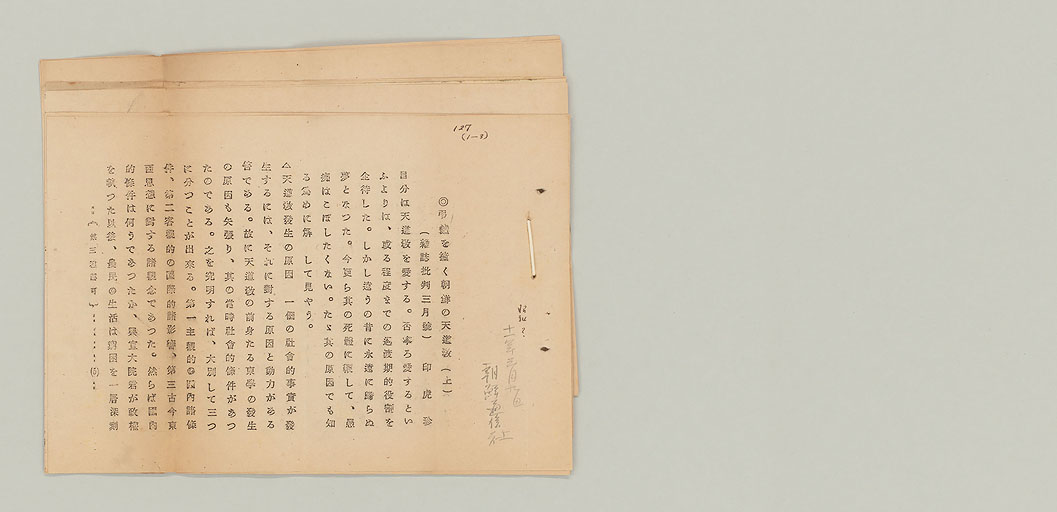 127
(1-3)
昭和?
十一年三月十日
朝鮮通信社
◎弔鐘を撞く朝鮮の天道教(上)
(雑誌批判三月號) 印虎珍
自分は天道教を愛する。否寧ろ愛するとい
ふよりは、或る程度までの過渡期的役割を
企待した。しかし這うの昔に永遠に歸らぬ
夢となつた。今更ら其の死體に鞭して、愚
痴はこぼしたくない。たゞ其の原因でも知
る為めに解 して見やう。
△天道教發生の原因 一個の社會的事實が發
生するには、それに對する原因と動力がある
筈である。故に天道教の前身たる東學の發生
の原因も矢張り、其の當時社會的條件があつ
たのである。之を究明すれば、大別して三つ
に分つことが出來る。第一主観的の國內諸條
件、第二客観的の國際的諸影響、第三古今東
西思想に對する諸観念であつた。然らば國內
的條件は何うであつたか、興宣大院君が政權
を執つた以後、農民の生活は窮困を一層深刻